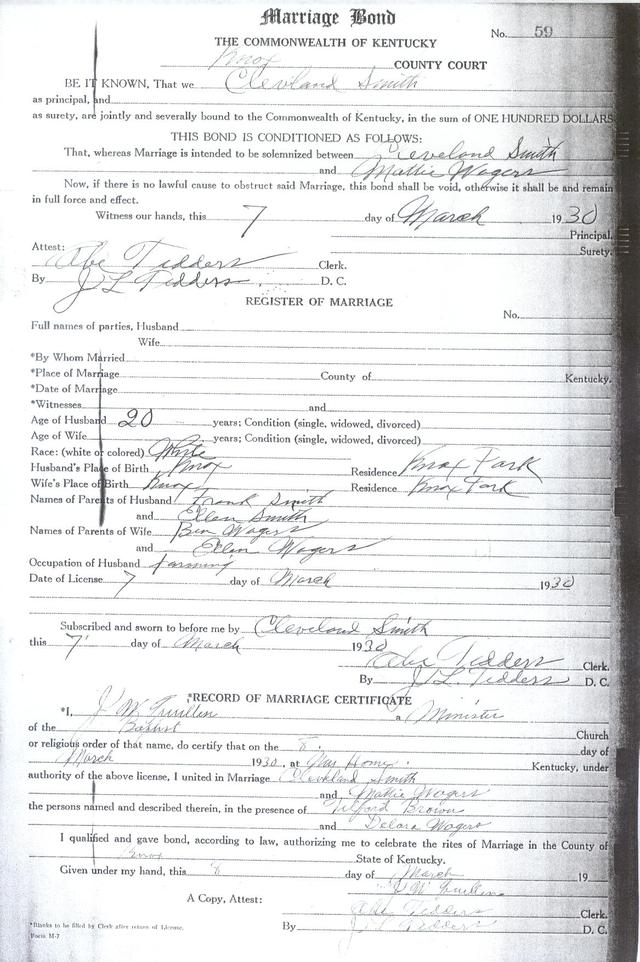 Marriage Bond
No. 59
THE COMMONWEALTH OF KENTUCKY
Knox COUNTY COURT
BE IT KNOWN, That we Clevland Smith
as principal, and
as surety, are jointly and severally bound to the Commonwealth of Kentucky, in the sum of ONE HUNDRED DOLLARS
THIS BOND IS CONDITIONED AS FOLLOWS:
That, whereas Marriage is intended to be solemnized between Cleveland Smith
and Mattie Wagers
Now, if there is no lawful cause to obstruct said Marriage, this bond shall be void, otherwise it shall be and remain
in full force and effect.
Witness our hands, this 7 day of March 1930
Principal.
Surety.
Attest:
Abe Tedders Clerk.
By J L Tedders, D. C.
REGISTER OF MARRIAGE
No.
Full names of parties, Husband
Wife
*By Whom Married
*Place of Marriage County of Kentucky.
*Date of Marriage
*Witnesses and
Age of Husband 20 years; Condition (single, widowed, divorced)
Age of Wife years; Condition (single, widowed, divorced)
Race: (white or colored) White
Husband's Place of Birth Knox Residence Knox Fork
Wife's Place of Birth Knox Residence Knox Fork
Names of Parents of Husband Frank Smith
and Ellen Smith
Names of Parents of Wife Ben Wagers
and Ellen Wagers
Occupation of Husband farming
Date of License 7 day of March 1930
Subscribed and sworn to before me by Cleveland Smith
this 7 day of March 1930
Abe Tedders Clerk.
By J. L. Tedders D. C.
*RECORD OF MARRIAGE CERTIFICATE
*I, J W a Minister
of the Baptist Church
or religious order of that name, do certify that on the 8 day of
March 1930, at Home. Kentucky, under
authority of the above license, I united in Marriage Clevland Smith
and Mattie Wagers
the persons named and described therein, in the presence of Brown
and Delora Wagers
I qualified and gave bond, according to law, authorizing me to celebrate the rites of Marriage in the County of
Knox State of Kentucky.
Given under my hand, this 8 day of March 19
J W
A Copy, Attest: Abe Tedders Clerk.
By J L Tedders D. C.
*Blanks to be filled by Clerk after return of License.
Form M-7